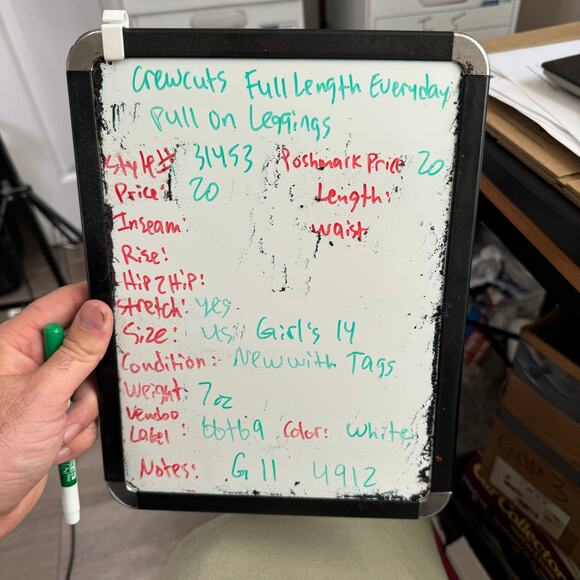 Crewcuts Full Length Everyday
Pull on Leggings
Style# 31453 Poshmark Price 20
Price: 20 Length:
Inseam: Waist
Rise:
Hip 2 Hip:
Stretch: yes
Size: US Girl's 14
Condition: New with Tags
Weight: 7oz
Vendoo
Label: Color: White
Notes: G11 4912